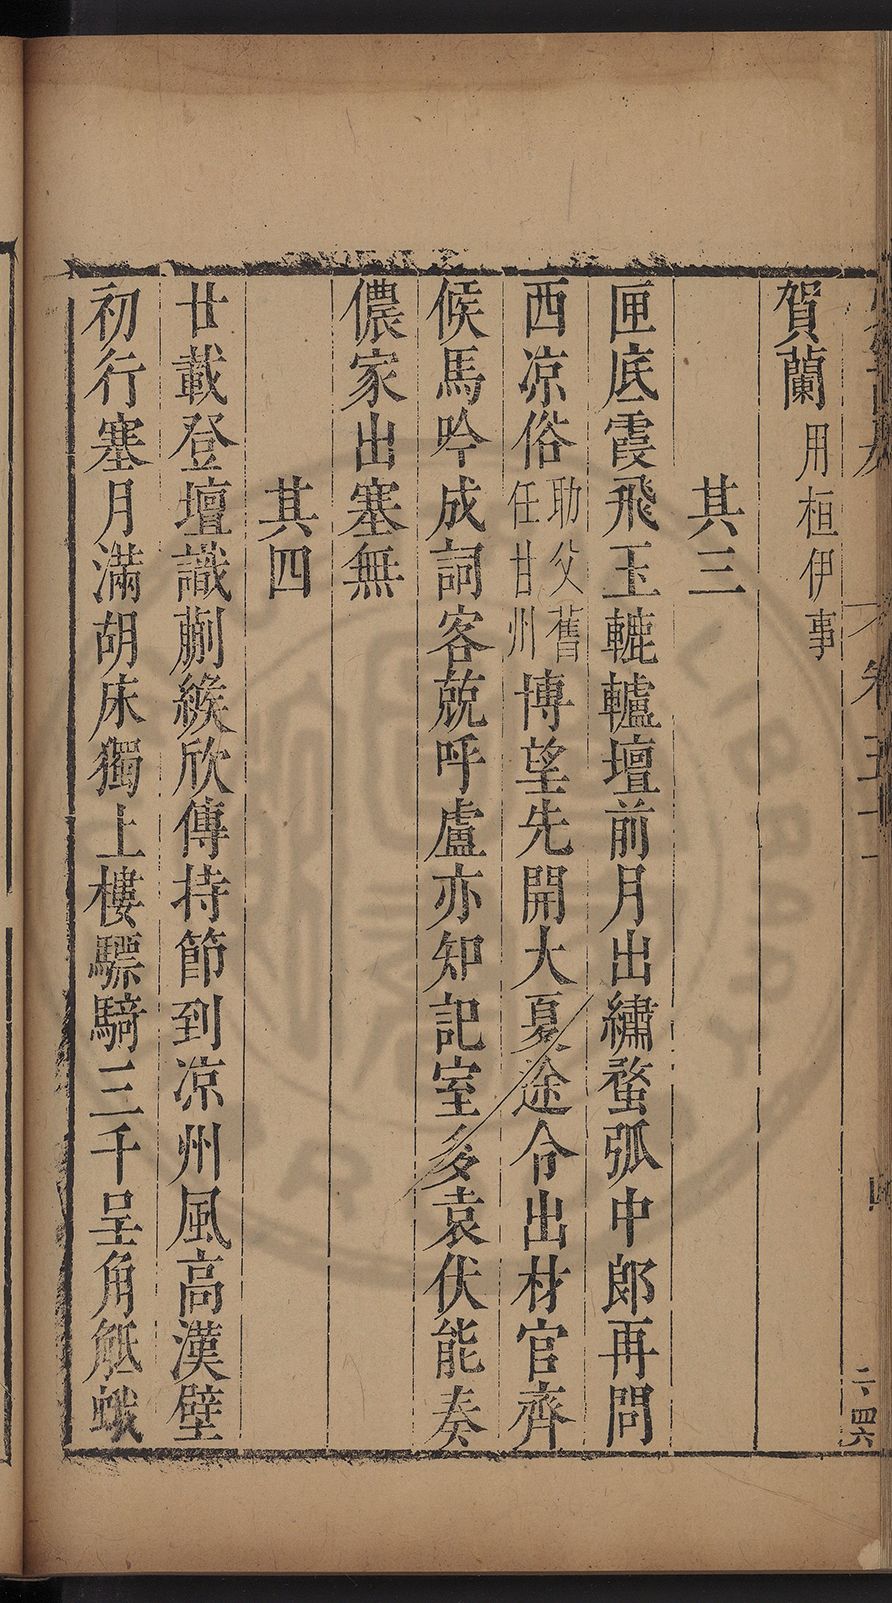 賀蘭用桓伊事
其三
匣底霞飛玉轆轤壇前月出繡蝥弧中郎再問
西凉俗助父舊任甘州博望先開大夏途令出材官齊
候馬吟成詞客兢呼盧亦知記室多袁伏能奏
儂家出塞無
其四
廿載登壇識蒯緱欣傳持節到凉州風高漢壁
初行塞月滿胡床獨上樓驃騎三千呈角觝蛾
卷五十
二、四六